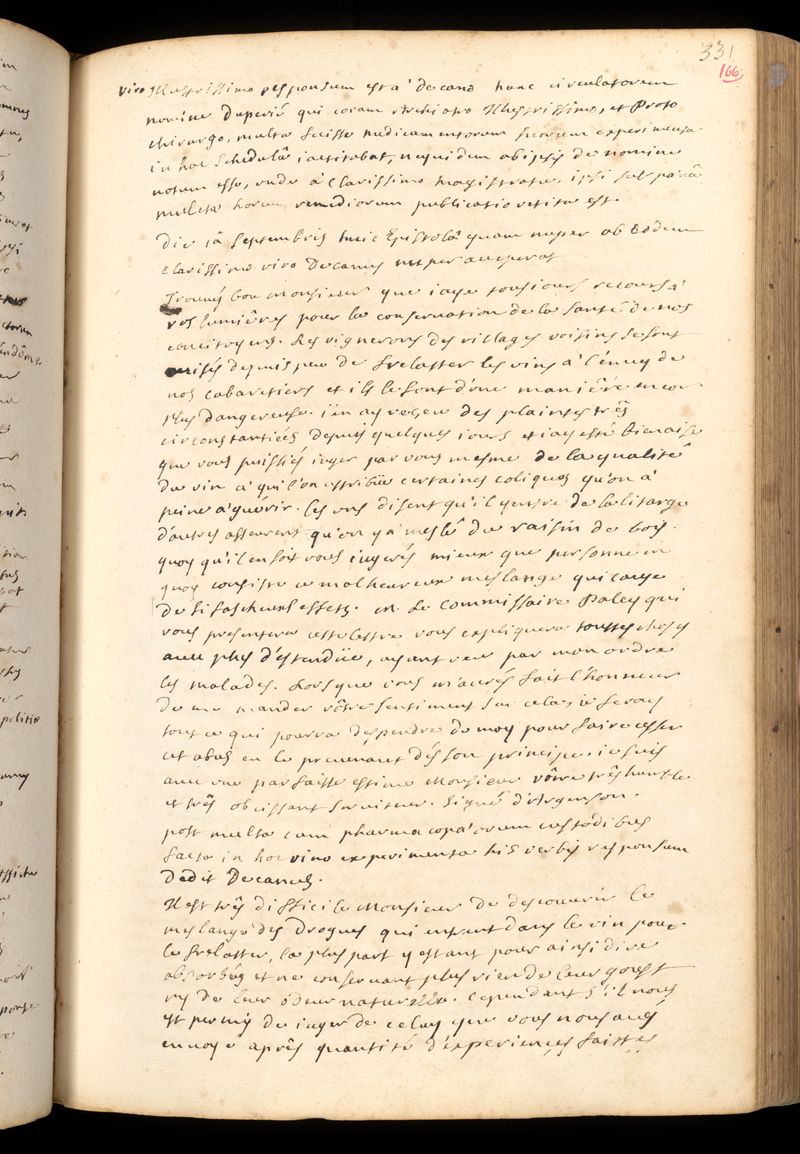 331
166
viro Illustrissimo responsum est a decano hunc circulatorem
nomine Duperié qui coram Archiatro Illustrissimo, et Proto
chirurgo, multa fuisse medicamentorum suorum experimenta
in hac schedulâ iactitabat, nequidem ab ipsis de nomine
notum esse, unde a Clarissimo magistratu, ipsi sub poenâ
mulctae horum remediorum publicatio vetita est.
Die septembris huic Epistolâ quam nuper ab Eodem
Clarissimo viro Decanus acceperat
Trouvés bon Monsieur que i'aye tousiours recours a
vos lumiêres pour la conservation de la santé de nos
concitoyens. Les vignerons des villages voisins se sont
avisés depuis peu de frelatter les vins a l'envy de
nos cabaretiers et ils le font d'une maniêre encor
plus dangereuse. i'en ay reçeu des plaintes três
circonstantiées depuis quelques iours et i'ay esté bien aise
que vous puissiés iuger par vous mesme de la qualité
du vin a qui l'on attribüe certaines coliques qu'on a
peine a guérir. Les uns disent qu'il y entre de la litarge
d'autres asseurent qu'on y a meslé du raisin de bois.
quoy qu'il en soit vous iugerés mieux que personne en
quoy consiste ce malheureux meslange qui cause
de si fascheux effets. M. Le Commissaire Daley qui
vous presentera cette lettre vous expliquera touttes choses
avec plus d'estendüe, ayant veu par mon ordre
les malades. Lorsque vous m'aurés fait l'honneur
de me mander vôtre sentiment sur cela, ie feray
tout ce qui pourra dependre de moy pour faire cesser
cet abus en le prevenant dês son principe. ie suis
avec une parfaitte estime Monsieur vôtre três humble
et três obeissant serviteur. Signé d'Argenson.
post multa cum pharmacopaeorum custodibus
facta in hoc vino experimenta his verbis responsum
dedit Decanus.
Il est três difficile Monsieur de descouvrir le
meslange des drogues qui entrent dans le vin pour
le frelatter, la plus part y estant pour ainsi dire
absorbées et ne conservant plus rien de leur goust
ny de leur odeur naturelle. Cependant s'il nous
est permis de iuger de celuy que vous nous avés
envoyé aprês quantité d'experiences faittes